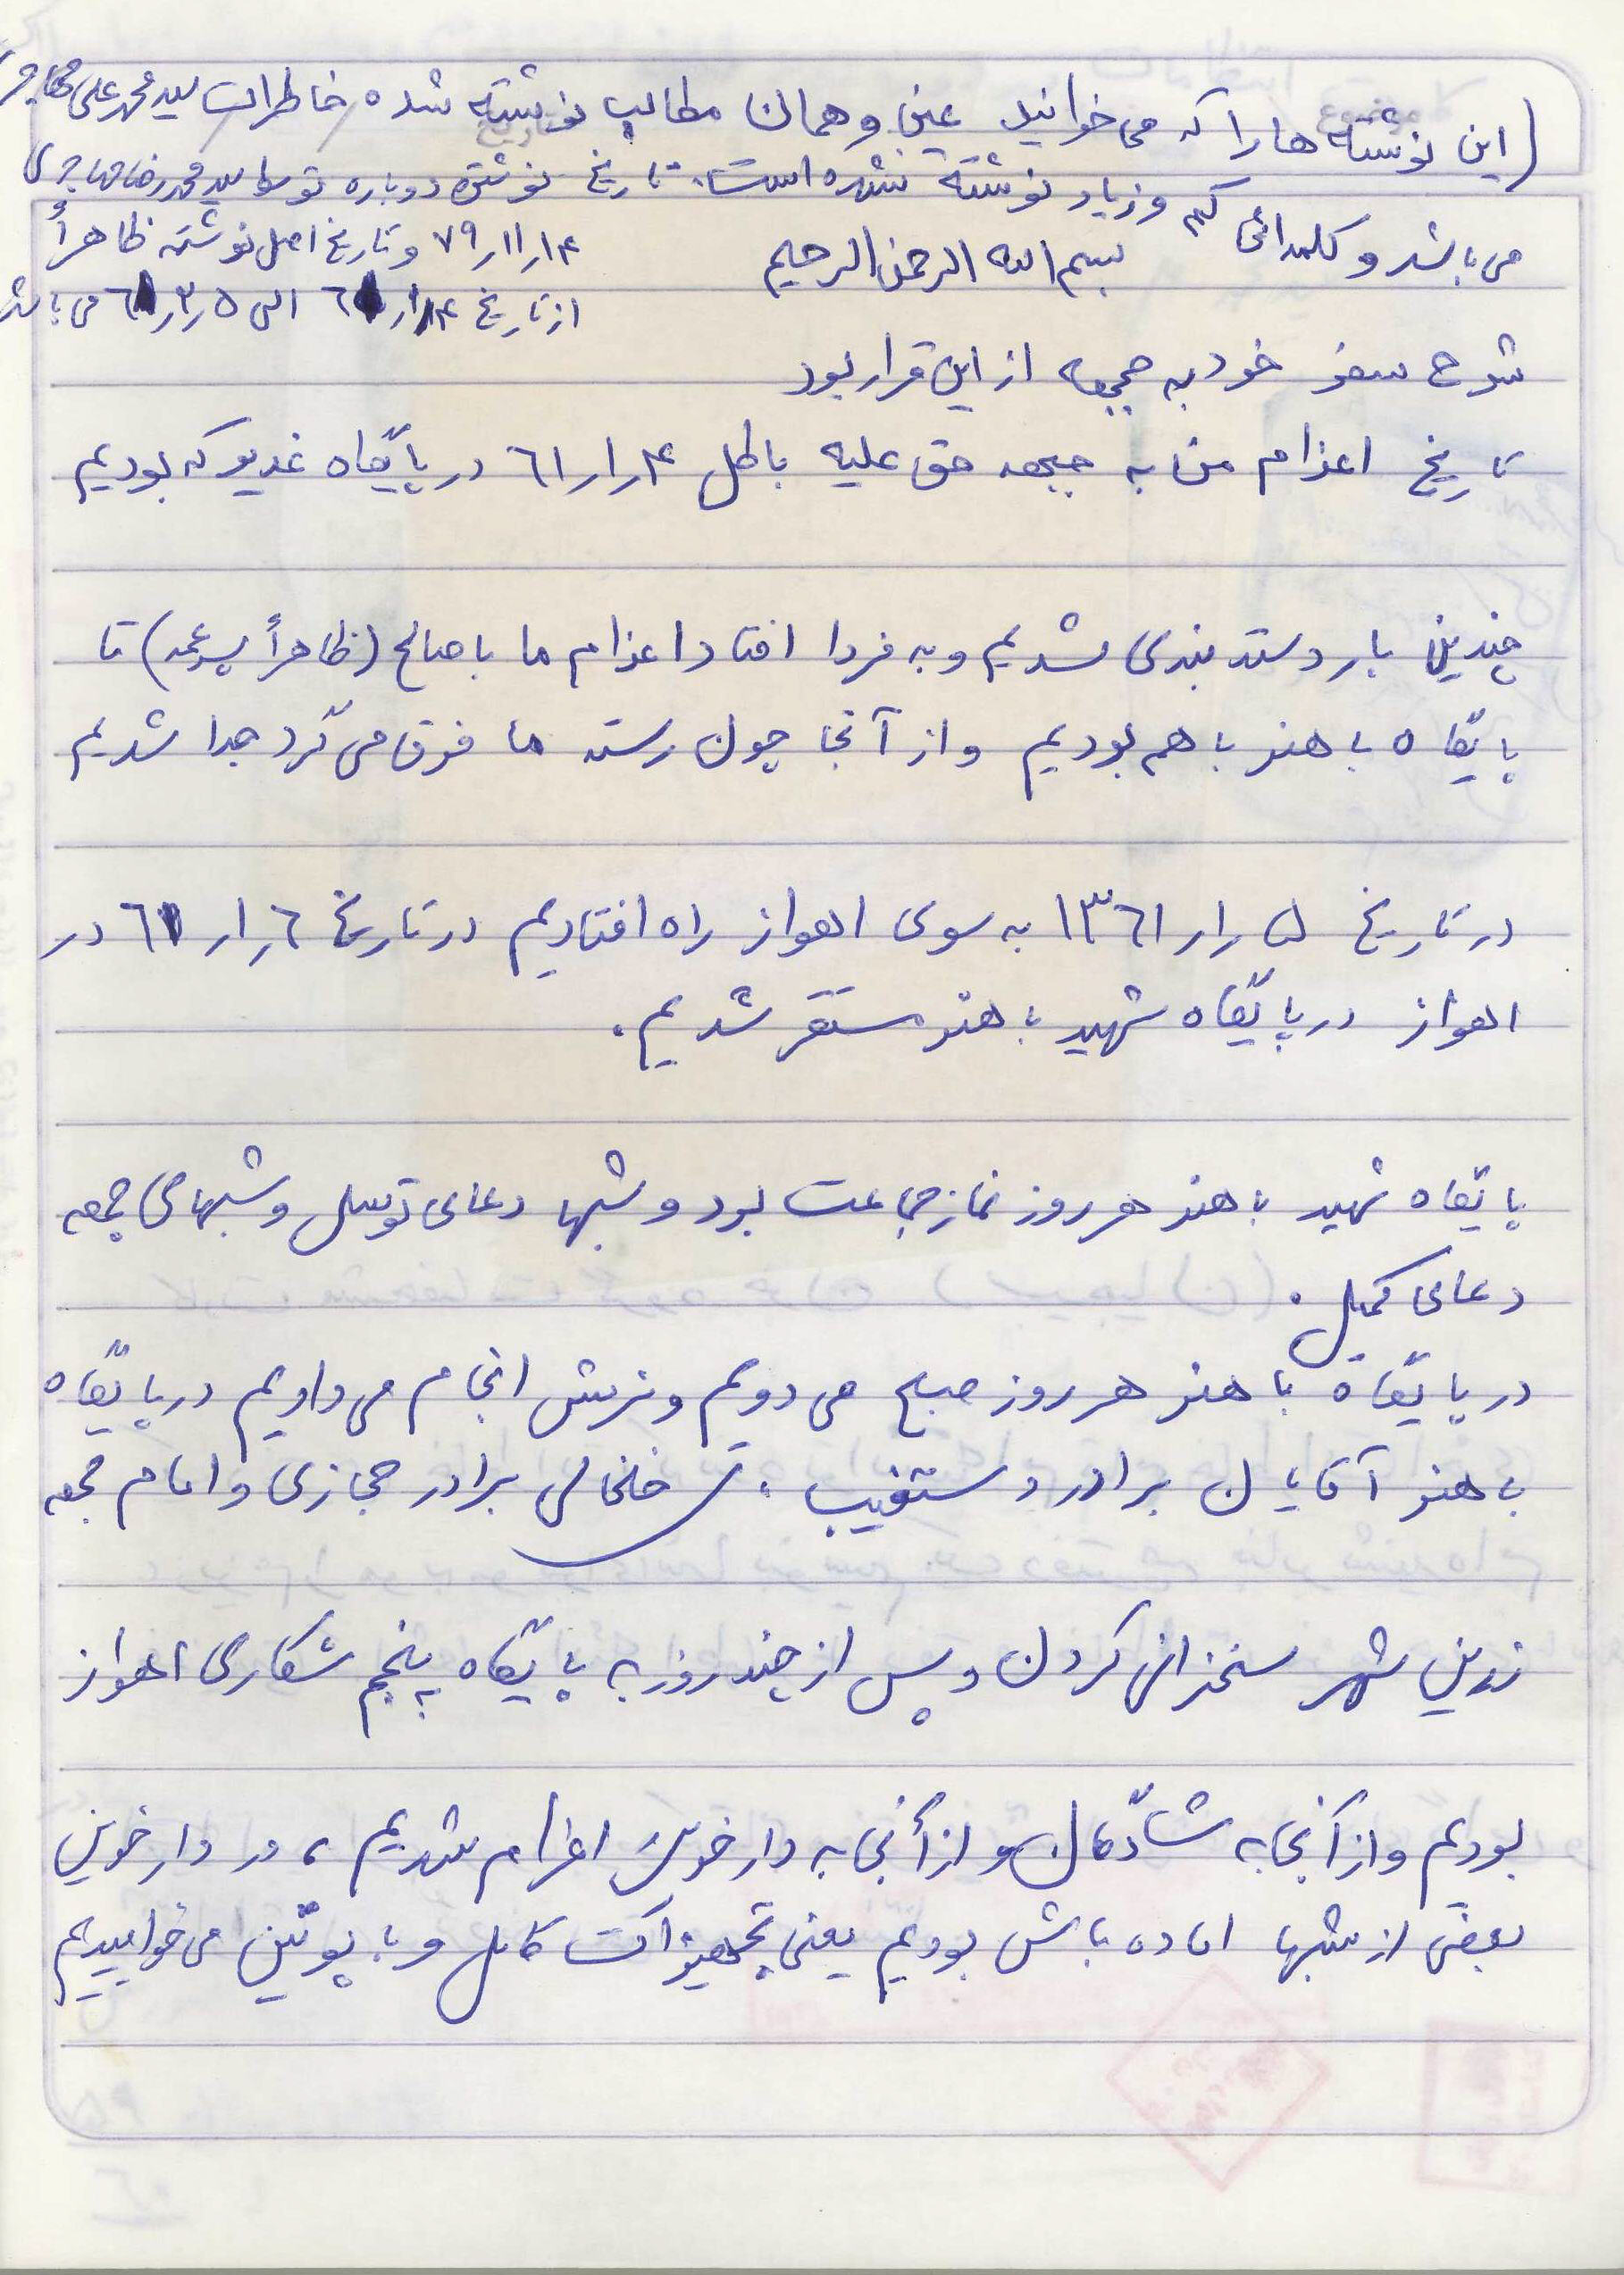 (این نوشته ها را که می خوانید عین و همان مطالب نوشته شده خاطرات سید محمد علی مهاجر
می باشد و کلمه ائی کم و زیاد نوشته نشده است. تاریخ نوشتن دوباره توسط سید محمد رضا مهاجری
۱۴ر۱۱ر۷۹ و تاریخ اصل نوشته ظاهراً
بسم الله الرحمن الرحیم
از تاریخ ۴ر۱ر۶۱ الی ۵ر۳ر۶۱ می باشد
شرح سفر خود به جبهه از این قرار بود
تاریخ اعزام من به جبهه حق علیه باطل ۴ر۱ر۶۱ در پایگاه غدیر که بودیم
چندین بار دسته بندی شدیم و به فردا افتاد اعزام ما با صالح (ظاهراً پسر عمه) تا
پایگاه باهنر با هم بودیم و از آنجا چون رسته ما فرق می کرد جدا شدیم
در تاریخ ۵ر۱ر۱۳۶۱ به سوی اهواز راه افتادیم در تاریخ ۶ر۱ر۶۱ در
اهواز در پایگاه شهید باهنر مستقر شدیم.
پایگاه شهید باهنر هر روز نماز جماعت بود و شبها دعای توسل و شبهای جمعه
دعای کمیل.
در پایگاه باهنر هر روز صبح می دویم و نرمش انجام می دادیم در پایگاه
باهنر آقایان برادر دستغیب. خلخالی برادر حجازی و امام جمعه
زرین شهر سخنرانی کردن و پس از چند روز به پایگاه پنجم شکاری اهواز
بودیم و از آنجا به شادگان و از آنجا به دارخوین اعزام شدیم، در دارخوین
بعضی از شبها اماده باش بودیم یعنی تجهیزاکت کامل و با پوتین می خوابیدیم